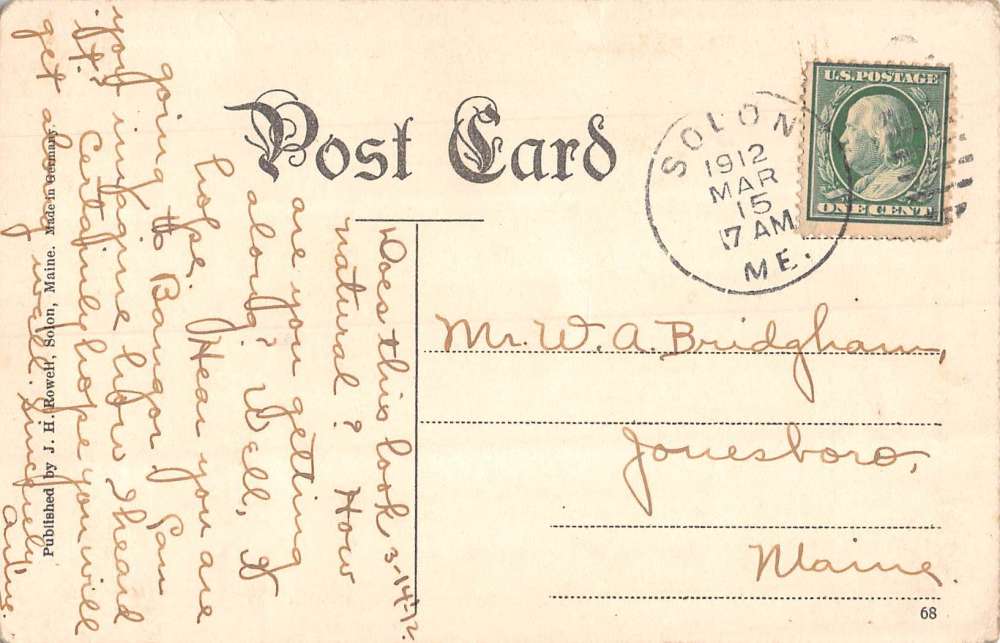 Post Card
U.S. POSTAGE
ONE CENT
SOLON
1912
MAR
15
7 AM
ME.
3-14-12.
Does this look
natural? How
are you getting
along? Well, I
hope. Hear you are
going to Bangor. Can
you imagine how I heard
it?
Certainly hope you will
get along well. Sincerely,
Mr. W. A. Bridgham,
Jonesboro,
Maine.
Published by J. H. Rowell, Solon, Maine. Made in Germany.
68